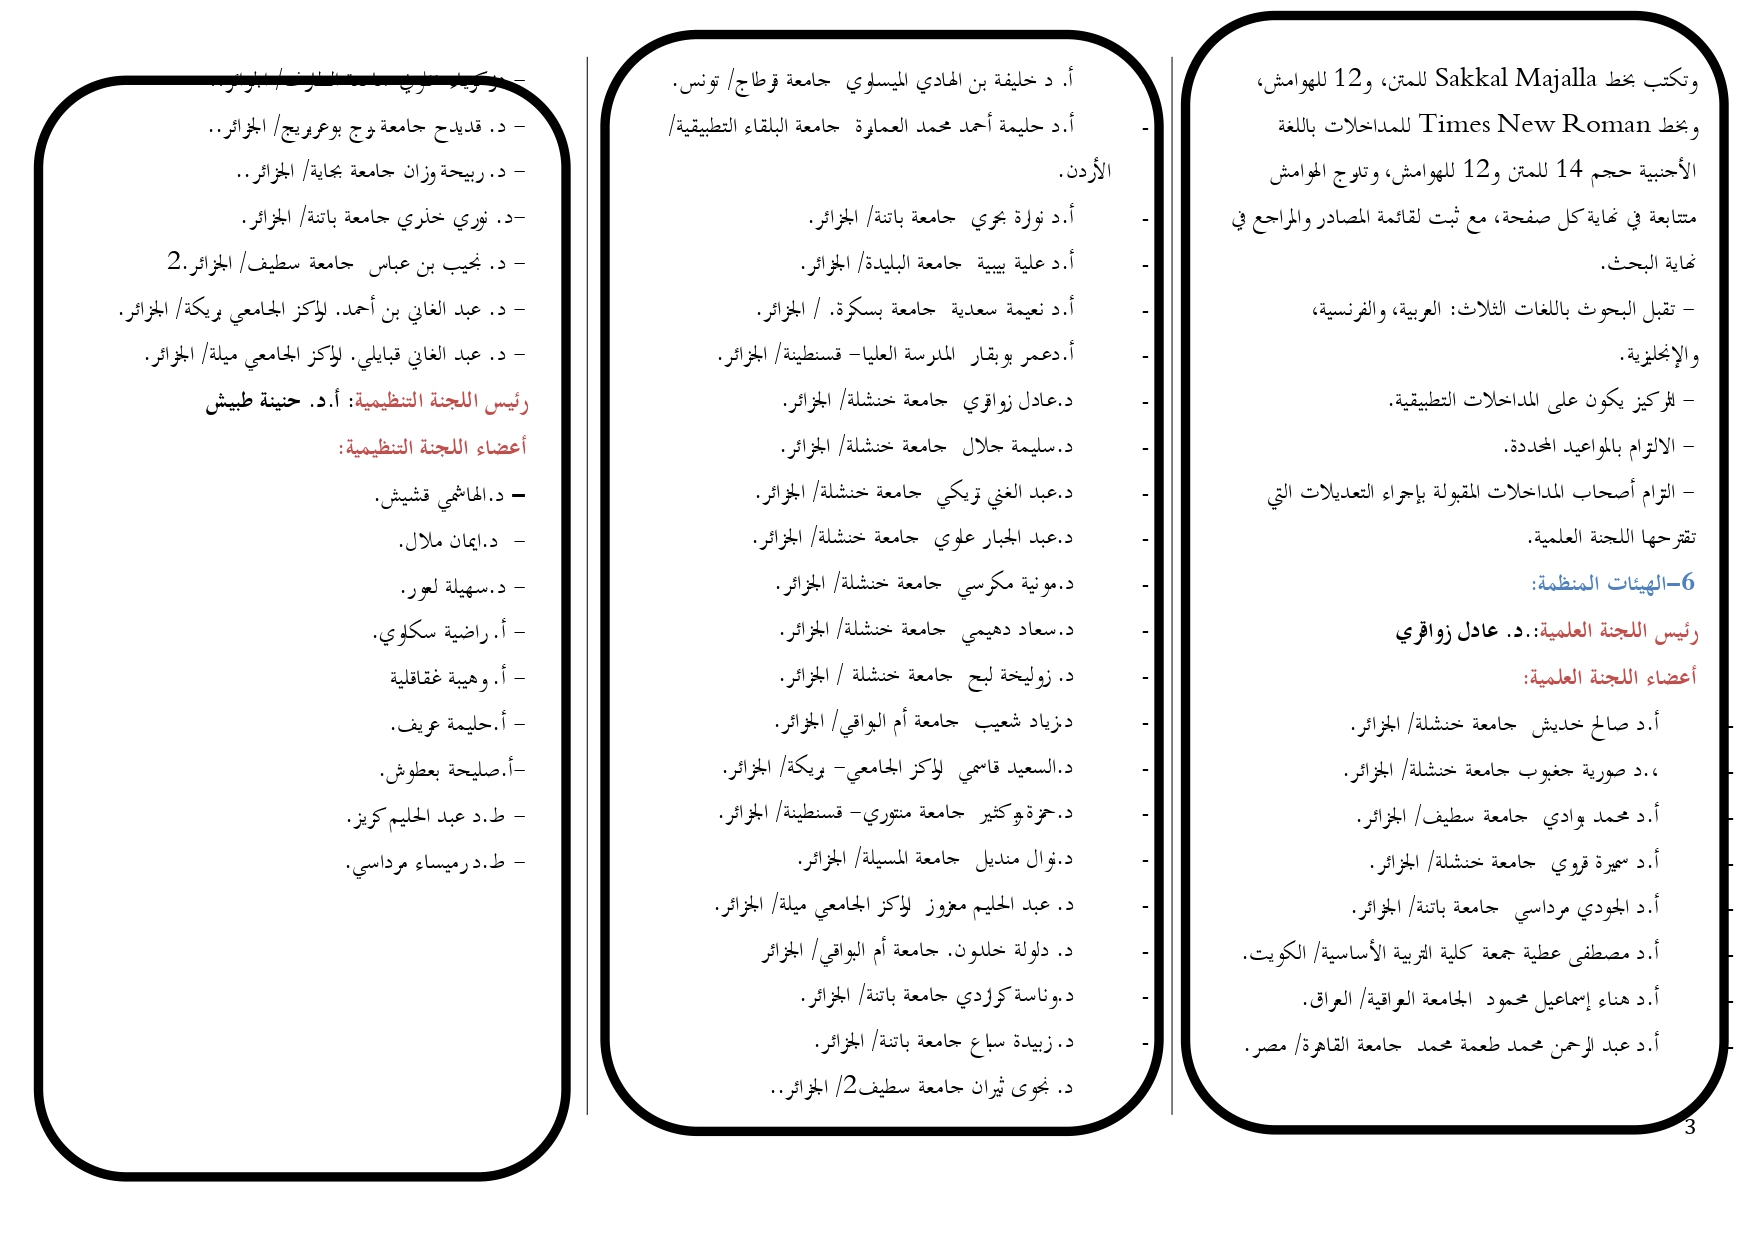 وتكتب بخط Sakkal Majalla للمتن، و12 للهوامش،
وبخط Times New Roman للمداخلات باللغة
الأجنبية حجم 14 للمتن و12 للهوامش، وتدرج الهوامش
متتابعة في نهاية كل صفحة، مع ثبت لقائمة المصادر والمراجع في
نهاية البحث.
– تقبل البحوث باللغات الثلاث: العربية، والفرنسية،
والإنجليزية.
– التركيز يكون على المداخلات التطبيقية.
– الالتزام بالمواعيد المحددة.
– التزام أصحاب المداخلات المقبولة بإجراء التعديلات التي
تقترحها اللجنة العلمية.
6–الهيئات المنظمة:
رئيس اللجنة العلمية:.د. عادل زواقري
أعضاء اللجنة العلمية:
- أ.د صالح خديش جامعة خنشلة/ الجزائر.
- ،.د صورية جغبوب جامعة خنشلة/ الجزائر.
- أ.د محمد بوادي جامعة سطيف/ الجزائر.
- أ.د سميرة قروي جامعة خنشلة/ الجزائر.
- أ.د الجودي مرداسي جامعة باتنة/ الجزائر.
- أ.د مصطفى عطية جمعة كلية التربية الأساسية/ الكويت.
- أ.د هناء إسماعيل محمود الجامعة العراقية/ العراق.
- أ.د عبد الرحمن محمد طعمة محمد جامعة القاهرة/ مصر.
أ. د خليفة بن الهادي الميساوي جامعة قرطاج/ تونس.
- أ.د حليمة أحمد محمد العمايرة جامعة البلقاء التطبيقية/
الأردن.
- أ.د نوارة بحري جامعة باتنة/ الجزائر.
- أ.د علية بيبية جامعة البليدة/ الجزائر.
- أ.د نعيمة سعدية جامعة بسكرة. / الجزائر.
- أ.دعمر بوبقار المدرسة العليا– قسنطينة/ الجزائر.
- د.عادل زواقري جامعة خنشلة/ الجزائر.
- د.سليمة جلال جامعة خنشلة/ الجزائر.
- د.عبد الغني تريكي جامعة خنشلة/ الجزائر.
- د.عبد الجبار علوي جامعة خنشلة/ الجزائر.
- د.مونية مكرسي جامعة خنشلة/ الجزائر.
- د.سعاد دهيمي جامعة خنشلة/ الجزائر.
- د. زوليخة لبح جامعة خنشلة / الجزائر.
- د.زياد شعيب جامعة أم البواقي/ الجزائر.
- د.السعيد قاسمي المركز الجامعي– بريكة/ الجزائر.
- د.حمزة بوكثير جامعة منتوري– قسنطينة/ الجزائر.
- د.نوال منديل جامعة المسيلة/ الجزائر.
- د. عبد الحليم معزوز المركز الجامعي ميلة/ الجزائر.
- د. دلولة خلدون. جامعة أم البواقي/ الجزائر
- د.وناسة كرازدي جامعة باتنة/ الجزائر.
- د. زبيدة سباع جامعة باتنة/ الجزائر.
د. نجوى ثيران جامعة سطيف2/ الجزائر..
– جامعة الطارف/ الجزائر..
– د. قديدح جامعة برج بوعريريج/ الجزائر..
– د. ربيحة وزان جامعة بجاية/ الجزائر..
–د. نوري خذري جامعة باتنة/ الجزائر.
– د. نجيب بن عباس جامعة سطيف/ الجزائر.2
– د. عبد الغاني بن أحمد. المركز الجامعي بريكة/ الجزائر.
– د. عبد الغاني قبايلي. المركز الجامعي ميلة/ الجزائر.
رئيس اللجنة التنظيمية: أ.د. حنينة طبيش
أعضاء اللجنة التنظيمية:
– د.الهاشمي قشيش.
– د.ايمان ملال.
– د.سهيلة لعور.
– أ. راضية سكاوي.
– أ. وهيبة غقاقلية
– أ.حليمة عريف.
–أ.صليحة بعطوش.
– ط.د عبد الحليم كريز.
– ط.د رميساء مرداسي.
3